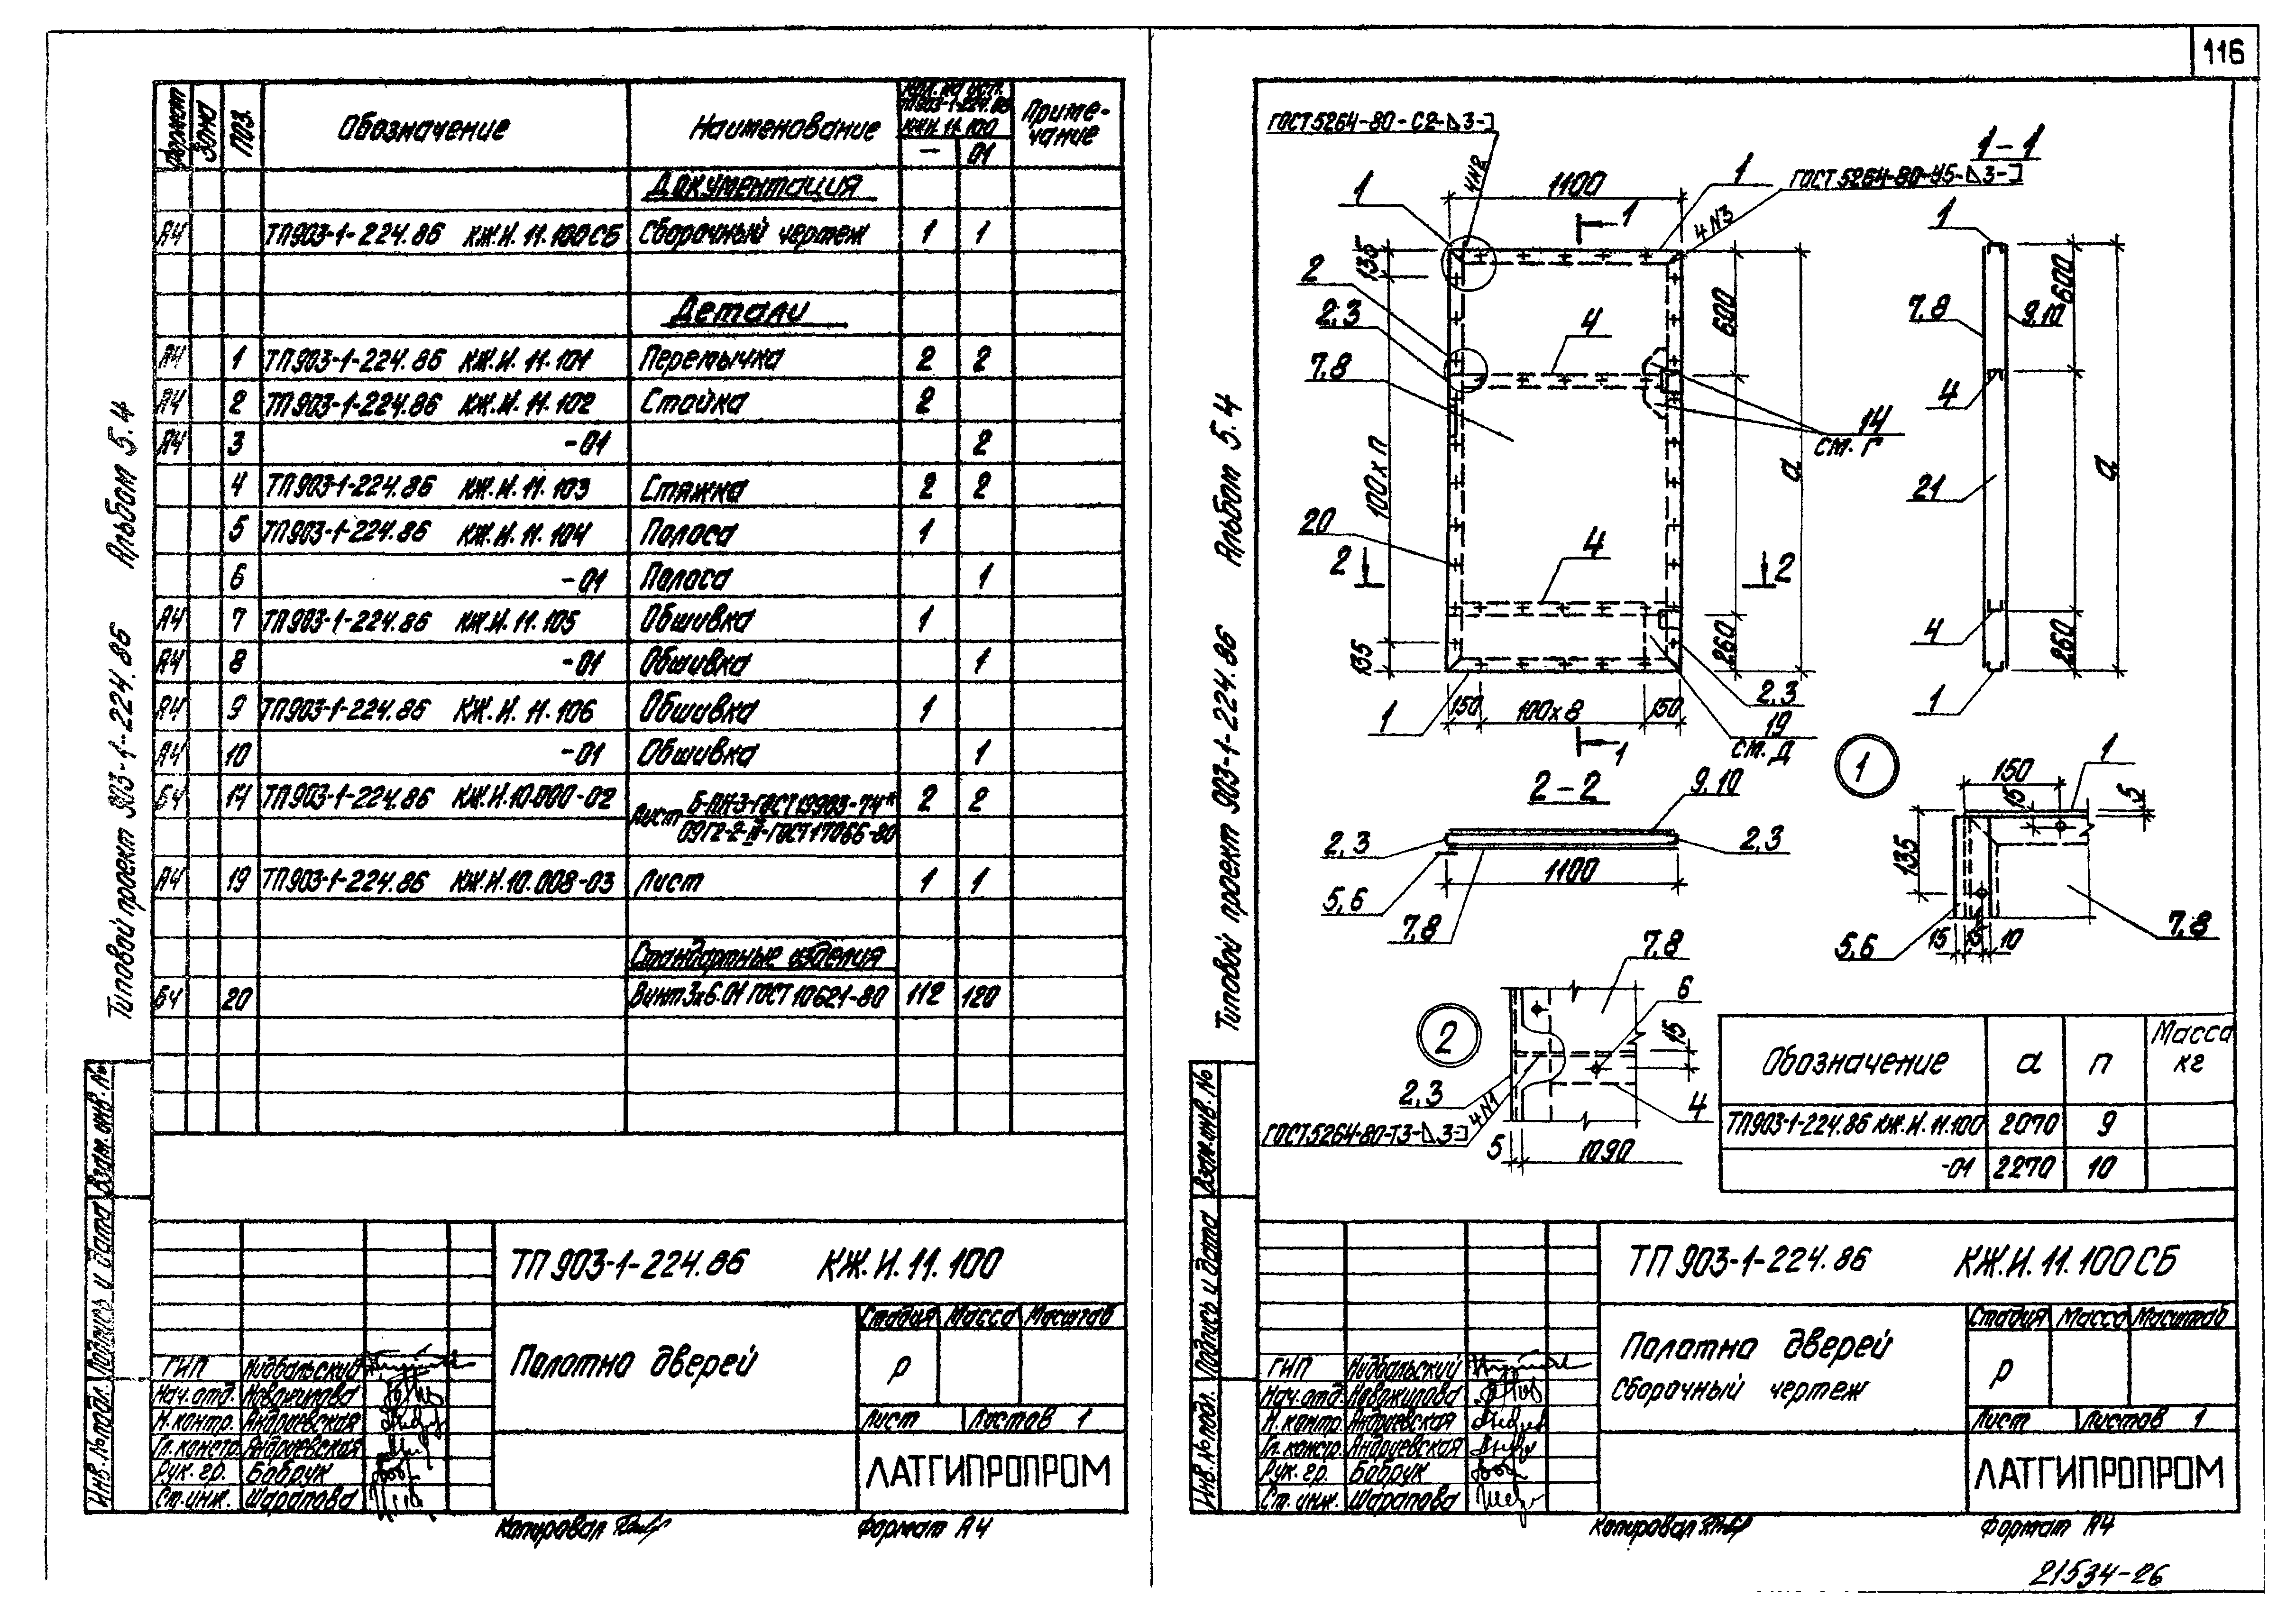 116
Типовой проект 903-1-224.86 Альбом 5.4
Формат
Зона
Поз.
Обозначение
Наименование
Кол. на исп.
ТП903-1-224.86
КЖ.И.11.100
Приме-
чание
— 01
Документация
А4 ТП903-1-224.86 КЖ.И.11.100СБ Сборочный чертеж 1 1
Детали
А4 1 ТП903-1-224.86 КЖ.И.11.101 Перемычка 2 2
А4 2 ТП903-1-224.86 КЖ.И.11.102 Стойка 2
А4 3 -01 2
4 ТП903-1-224.86 КЖ.И.11.103 Стяжка 2 2
5 ТП903-1-224.86 КЖ.И.11.104 Полоса 1
6 -01 Полоса 1
А4 7 ТП903-1-224.86 КЖ.И.11.105 Обшивка 1
А4 8 -01 Обшивка 1
А4 9 ТП903-1-224.86 КЖ.И.11.106 Обшивка 1
А4 10 -01 Обшивка 1
БЧ 14 ТП903-1-224.86 КЖ.И.10.000-02 Лист Б-ПН-3-ГОСТ19903-74* 2 2
09Г2-2-III-ГОСТ17066-80
А4 19 ТП903-1-224.86 КЖ.И.10.008-03 Лист 1 1
Стандартные изделия
БЧ 20 Винт3х6.01 ГОСТ10621-80 112 120
Инв.№подл. Подпись и дата Взам.инв.№
ТП903-1-224.86 КЖ.И.11.100
Полотна дверей
Стадия Масса Масштаб
Р
Лист Листов 1
ЛАТГИПРОПРОМ
ГИП
Нач.отд. Новожилова
Н.контр. Андриевская
Гл.констр. Андриевская
Рук.гр. Бобрук
Ст.инж. Шарапова
Копировал
Формат А4
Типовой проект 903-1-224.86 Альбом 5.4
ГОСТ5264-80-С2-⊿3-⊐
4№2
1
1100
1
1
ГОСТ5264-80-У5-⊿3-⊐
4№3
1-1
135
2
2,3
7,8
4
600
а
100хп
14
см.Г
20
2
2
4
135
260
150
100х8
150
1
2,3
19
см.Д
1
1
600
7,8
9,10
4
21
а
4
260
1
2-2
9,10
2,3
2,3
1100
5,6
7,8
1
150
15
1
5
135
5,6
15
15
10
7,8
2
7,8
6
15
2,3
4
4№1
ГОСТ5264-80-Т3-⊿3-⊐
5
1090
Обозначение а п Масса
кг
ТП903-1-224.86 КЖ.И.11.100 2070 9
-01 2270 10
Инв.№подл. Подпись и дата Взам.инв.№
ТП903-1-224.86 КЖ.И.11.100СБ
Полотна дверей
Сборочный чертеж
Стадия Масса Масштаб
Р
Лист Листов 1
ЛАТГИПРОПРОМ
ГИП
Нач.отд. Новожилова
Н.контр. Андриевская
Гл.констр. Андриевская
Рук.гр. Бобрук
Ст.инж. Шарапова
Копировал
Формат А4
21534-26